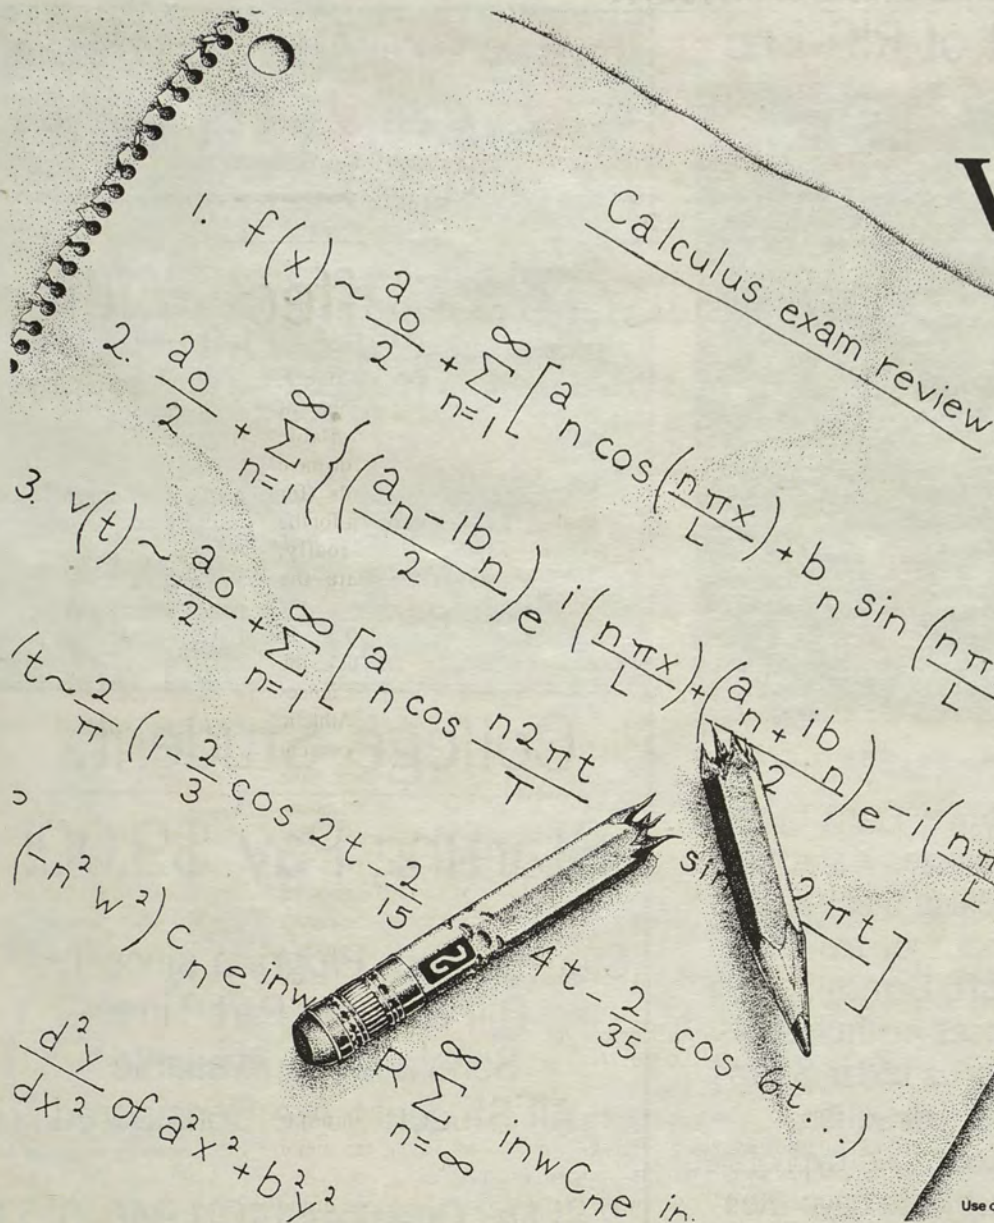 Calculus exam review
1. f(x) ~ a₀/2 + ∑ n=1 ∞ [aₙ cos (nπx/L) + bₙ sin (nπ/L
2. a₀/2 + ∑ n=1 ∞ {(aₙ - 1bₙ/2) e i (nπx/L) + (aₙ + ibₙ/2) e -i (nπ/L
3. v(t) ~ a₀/2 + ∑ n=1 ∞ [aₙ cos n2πt/T sin 2πt]
(t ~ 2/π (1 - 2/3 cos 2t - 2/15 4t - 2/35 cos 6t...)
(-n²w²) Cₙe inw R ∑ n=∞ ∞ inw Cₙe in
d²y/dx² of a²x² + b²y²
2
V
Use